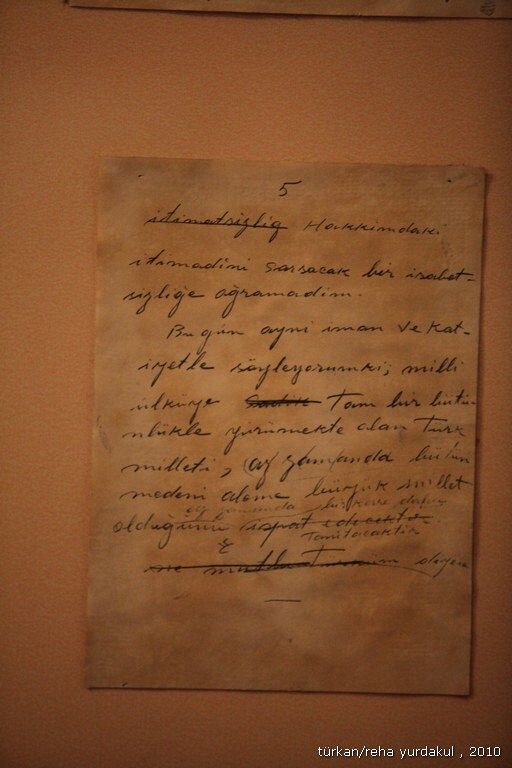 5
itimatsizliğ Hakkımdaki
itimadini sarsacak bir isabet-
sizliğe oğramadım.
Bugün ayni iman ve kat-
iyetle söyleyorumki; milli
ülküye Tam bir bütü-
nlükle yürümekte olan Türk
milleti, (az zamanda bütün
medeni aleme büyük millet
az zamanda bir kere daha
olduğunu ispat edecektir.
Tanıtacaktır
ne mutlu Türküm deyene
türkan/reha yurdakul , 2010